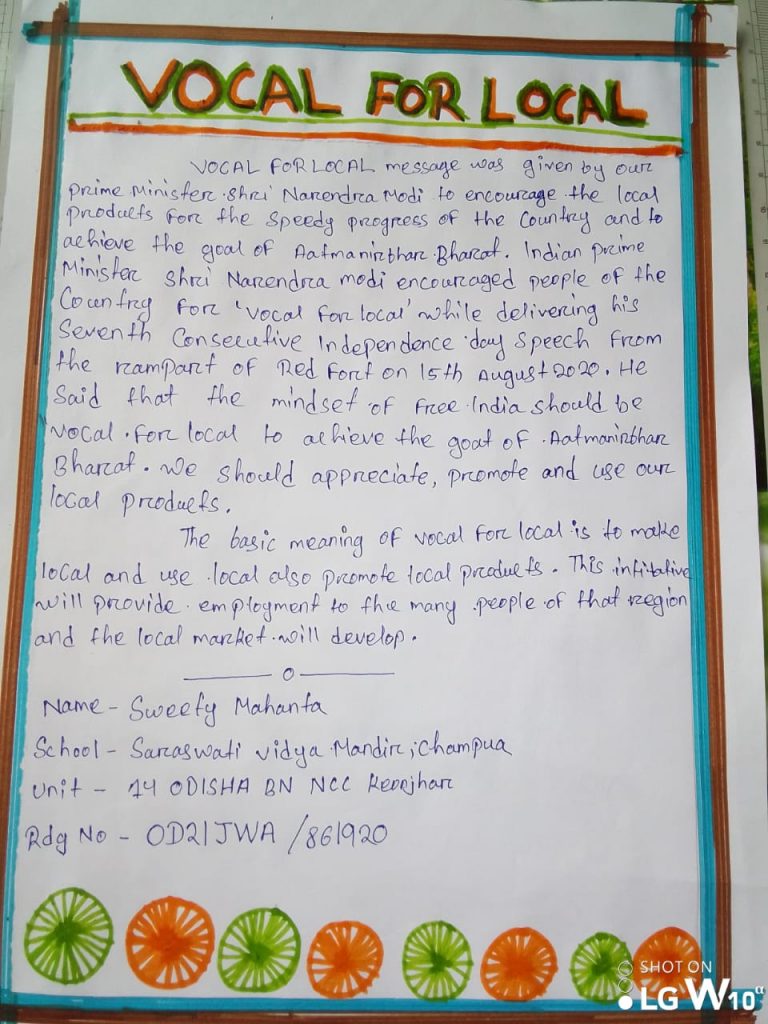 VOCAL FOR LOCAL
VOCAL FOR LOCAL message was given by our
prime Minister Shri Narendra Modi to encourage the local
products for the speedy progress of the Country and to
achieve the goal of Aatmanirbhar Bharat. Indian prime
Minister Shri Narendra modi encouraged people of the
Country for 'vocal for local' while delivering his
Seventh Consecutive Independence day speech from
the rampart of Red Fort on 15th August 2020. He
Said that the mindset of free India should be
vocal for local to achieve the goal of Aatmanirbhar
Bharat. We should appreciate, promote and use our
local products.
The basic meaning of vocal for local is to make
local and use local also promote local products. This
will provide employment to the many people of that region
and the local market will develop.
Name - Sweety Mahanta
School - Saraswati vidya Mandir, Champua
Unit - 14 ODISHA BN NCC Keonjhar
Rdg No - OD21JWA/861920
SHOT ON
LG W10α